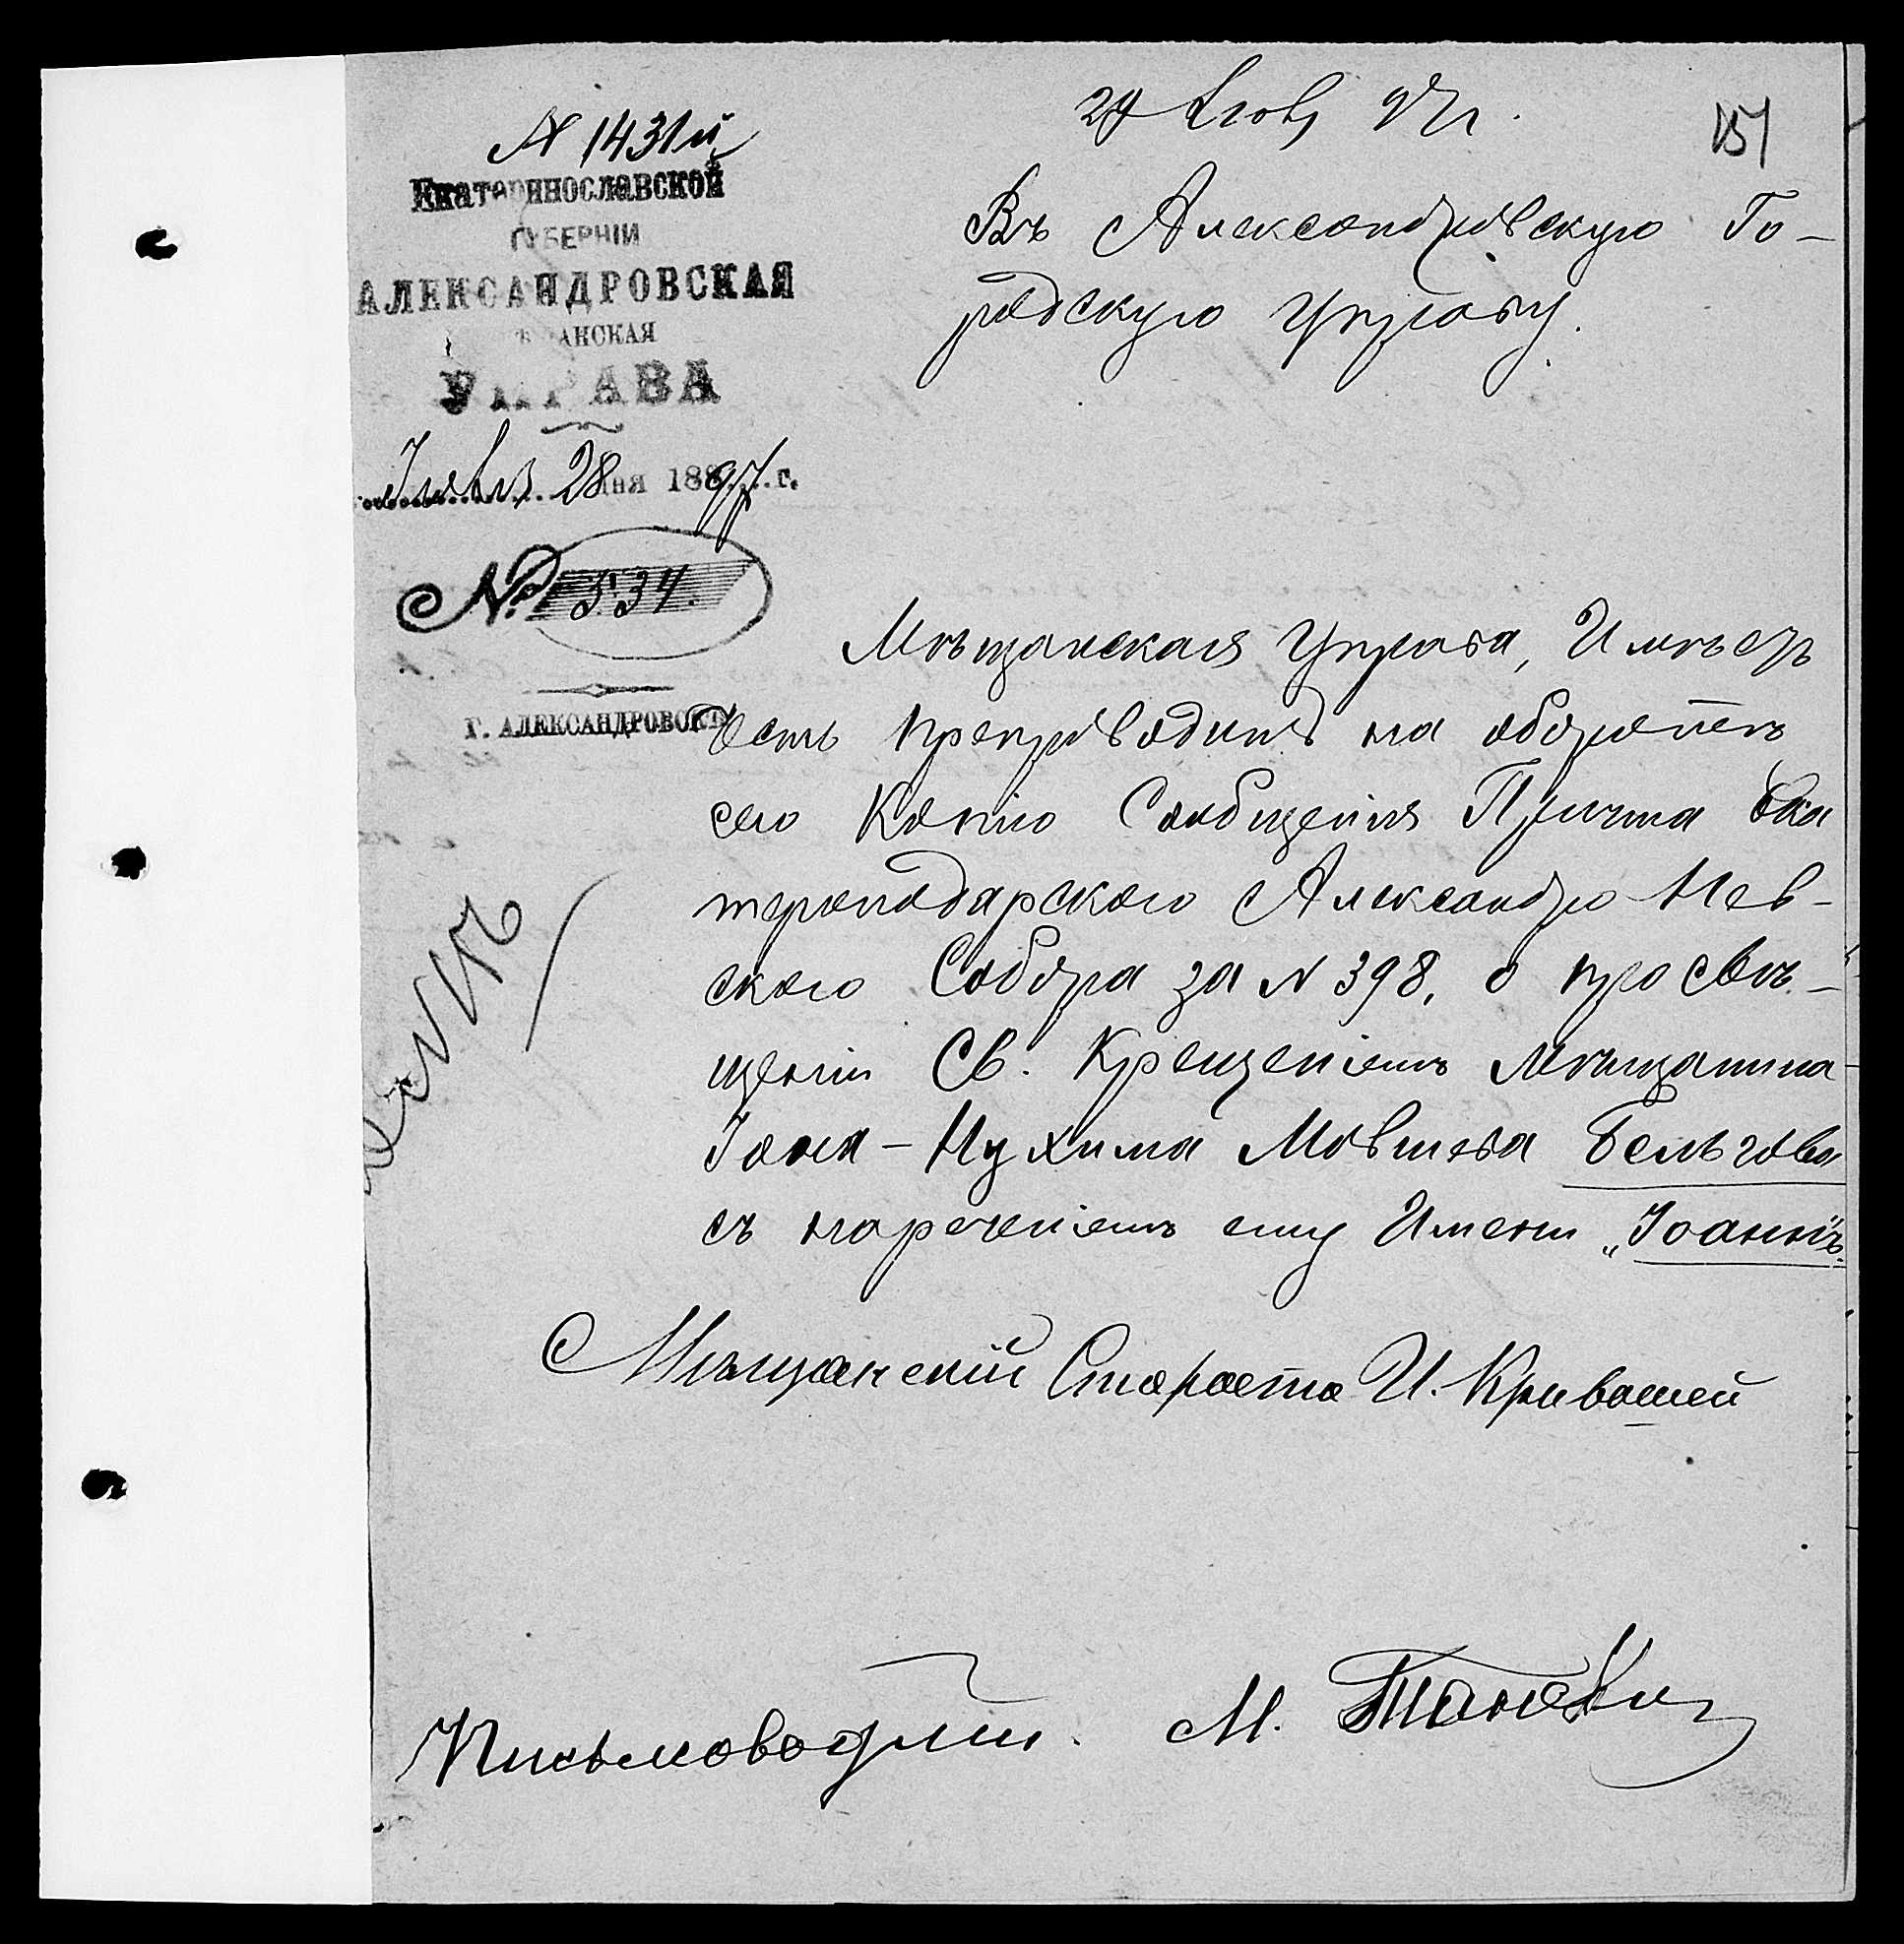 № 1431й
28 Іюня 97 г.
151
Екатеринославской
ГУБЕРНІИ
АЛЕКСАНДРОВСКАЯ
МѢЩАНСКАЯ
УПРАВА
28 дня 1897 г.
№ 534.
Г. АЛЕКСАНДРОВСКЪ
Въ Александровскую Го-
родскую Управу.
Мѣщанская Управа, Имѣетъ
честь препроводить на оборотѣ
сего Копію Сообщенія Причта Ека
теринодарского Александро Нев-
ского Собора за № 398, о просвѣ-
щеніи Св. Крещеніемъ мѣщанина
Іона-Нухима Мовшева Бельгова
съ нареченіемъ ему Имени „Іоаннъ".
Мѣщанскій Староста И. Кривошей
Письмоводитель М.